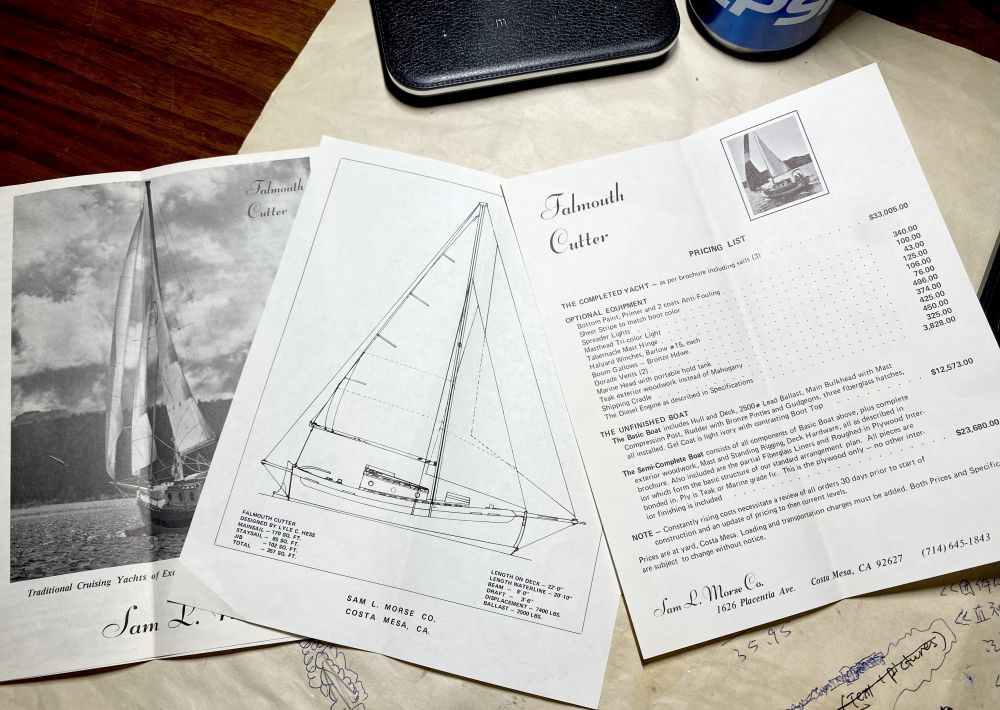 Falmouth
Cutter
Traditional Cruising Yachts of
Sam L.
FALMOUTH CUTTER
DESIGNED BY LYLE C. HESS
MAINSAIL – 170 SQ. FT.
STAYSAIL – 85 SQ. FT.
JIB – 102 SQ. FT.
TOTAL – 357 SQ. FT.
LENGTH ON DECK – 22'-0"
LENGTH WATERLINE – 20'-10"
BEAM – 8'-0"
DRAFT – 3'-6"
DISPLACEMENT – 7400 LBS.
BALLAST – 2500 LBS.
SAM L. MORSE CO.
COSTA MESA, CA.
Falmouth
Cutter
PRICING LIST
THE COMPLETED YACHT – as per brochure including sails (3) $33,005.00
OPTIONAL EQUIPMENT
Bottom Paint, Primer and 2 coats Anti Fouling 340.00
Sheer Stripe to match boot color 100.00
Spreader Lights 43.00
Masthead Tri-color Light 125.00
Tabernacle Mast Hinge 106.00
Halyard Winches, Barlow #15, each 76.00
Boom Gallows – Bronze Hdwe. 496.00
Dorade Vents (2) 374.00
Marine Head with portable hold tank 425.00
Teak exterior woodwork instead of Mahogany 450.00
Shipping Cradle 325.00
The Diesel Engine as described in Specifications 3,828.00
THE UNFINISHED BOAT
The Basic Boat includes Hull and Deck, 2500# Lead Ballast, Main Bulkhead with Mast
Compression Post, Rudder with Bronze Pintles and Gudgeons, three fiberglass hatches,
all installed. Gel Coat is light ivory with contrasting Boot Top $12,573.00
The Semi-Complete Boat consists of all components of Basic Boat above, plus complete
exterior woodwork, Mast and Standing Rigging, Deck Hardware, all as described in
brochure. Also included are the partial Fiberglass Liners and Roughed in Plywood Inter-
ior which form the basic structure of our standard arrangement plan. All pieces are
bonded in. Ply is Teak or Marine grade fir. This is the plywood only – no other inter-
ior finishing is included $23,680.00
NOTE – Constantly rising costs necessitate a review of all orders 30 days prior to start of
construction and an update of pricing to then current levels.
Prices are at yard, Costa Mesa. Loading and transportation charges must be added. Both Prices and
are subject to change without notice.
Sam L. Morse Co.
1626 Placentia Ave. Costa Mesa, CA 92627 (714) 645-1843
35.95
(Text + pictures)